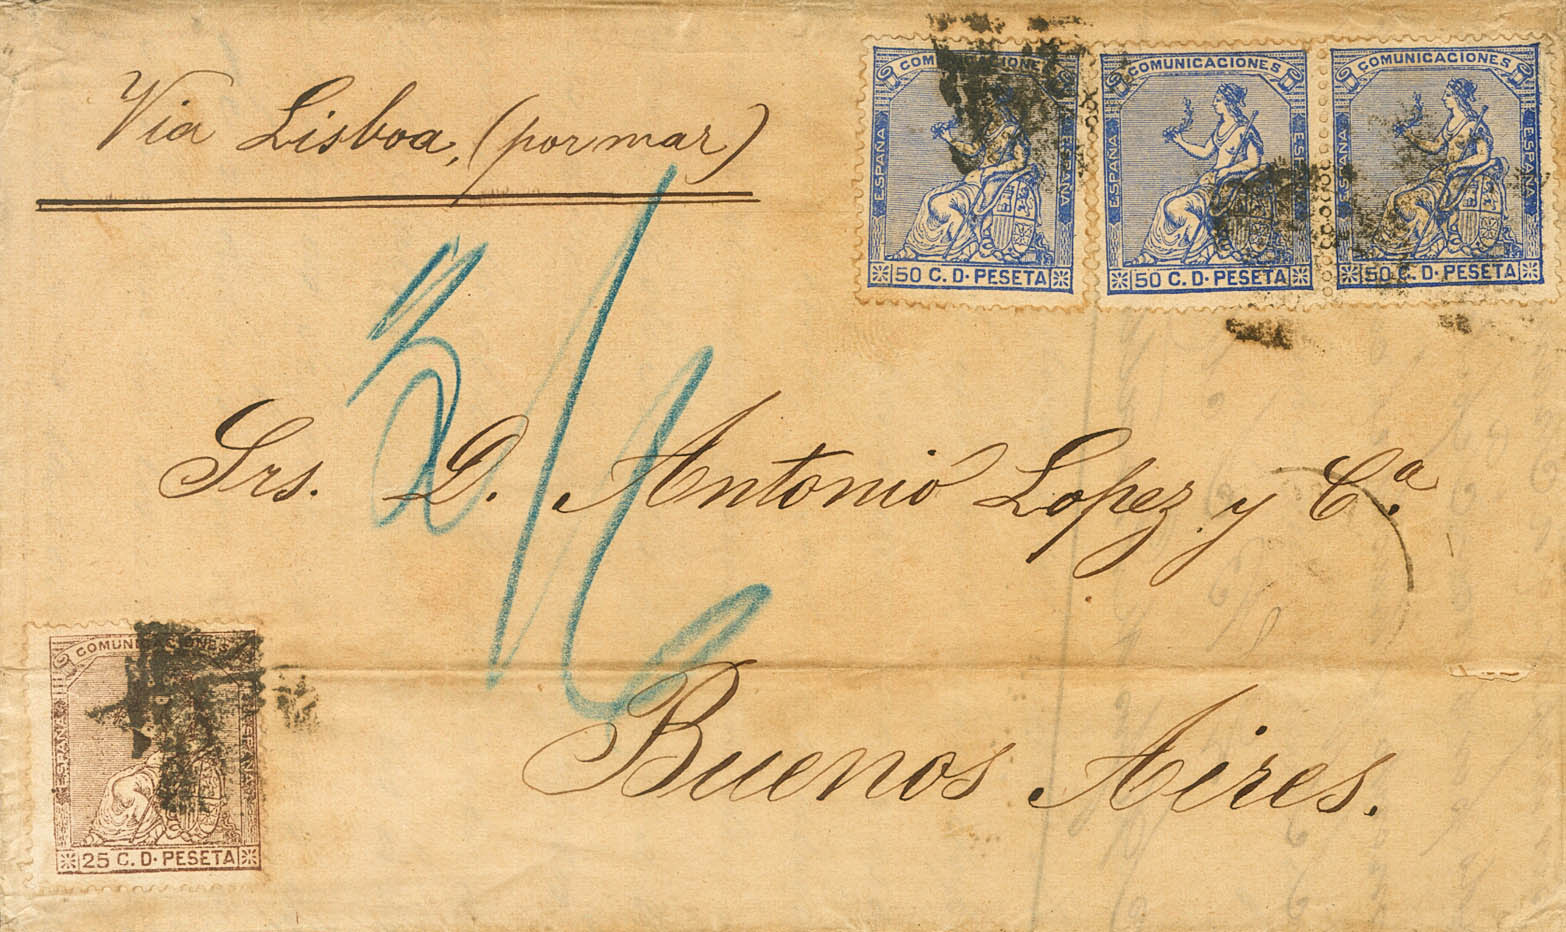 Via Lisboa, (por mar)
COMUNICACIONES
ESPAÑA
ESPAÑA
50 C. D. PESETA
COMUNICACIONES
ESPAÑA
ESPAÑA
50 C. D. PESETA
COMUNICACIONES
ESPAÑA
ESPAÑA
50 C. D. PESETA
Srs. D. Antonio Lopez y Cª.
Buenos Aires.
COMUNICACIONES
ESPAÑA
ESPAÑA
25 C. D. PESETA